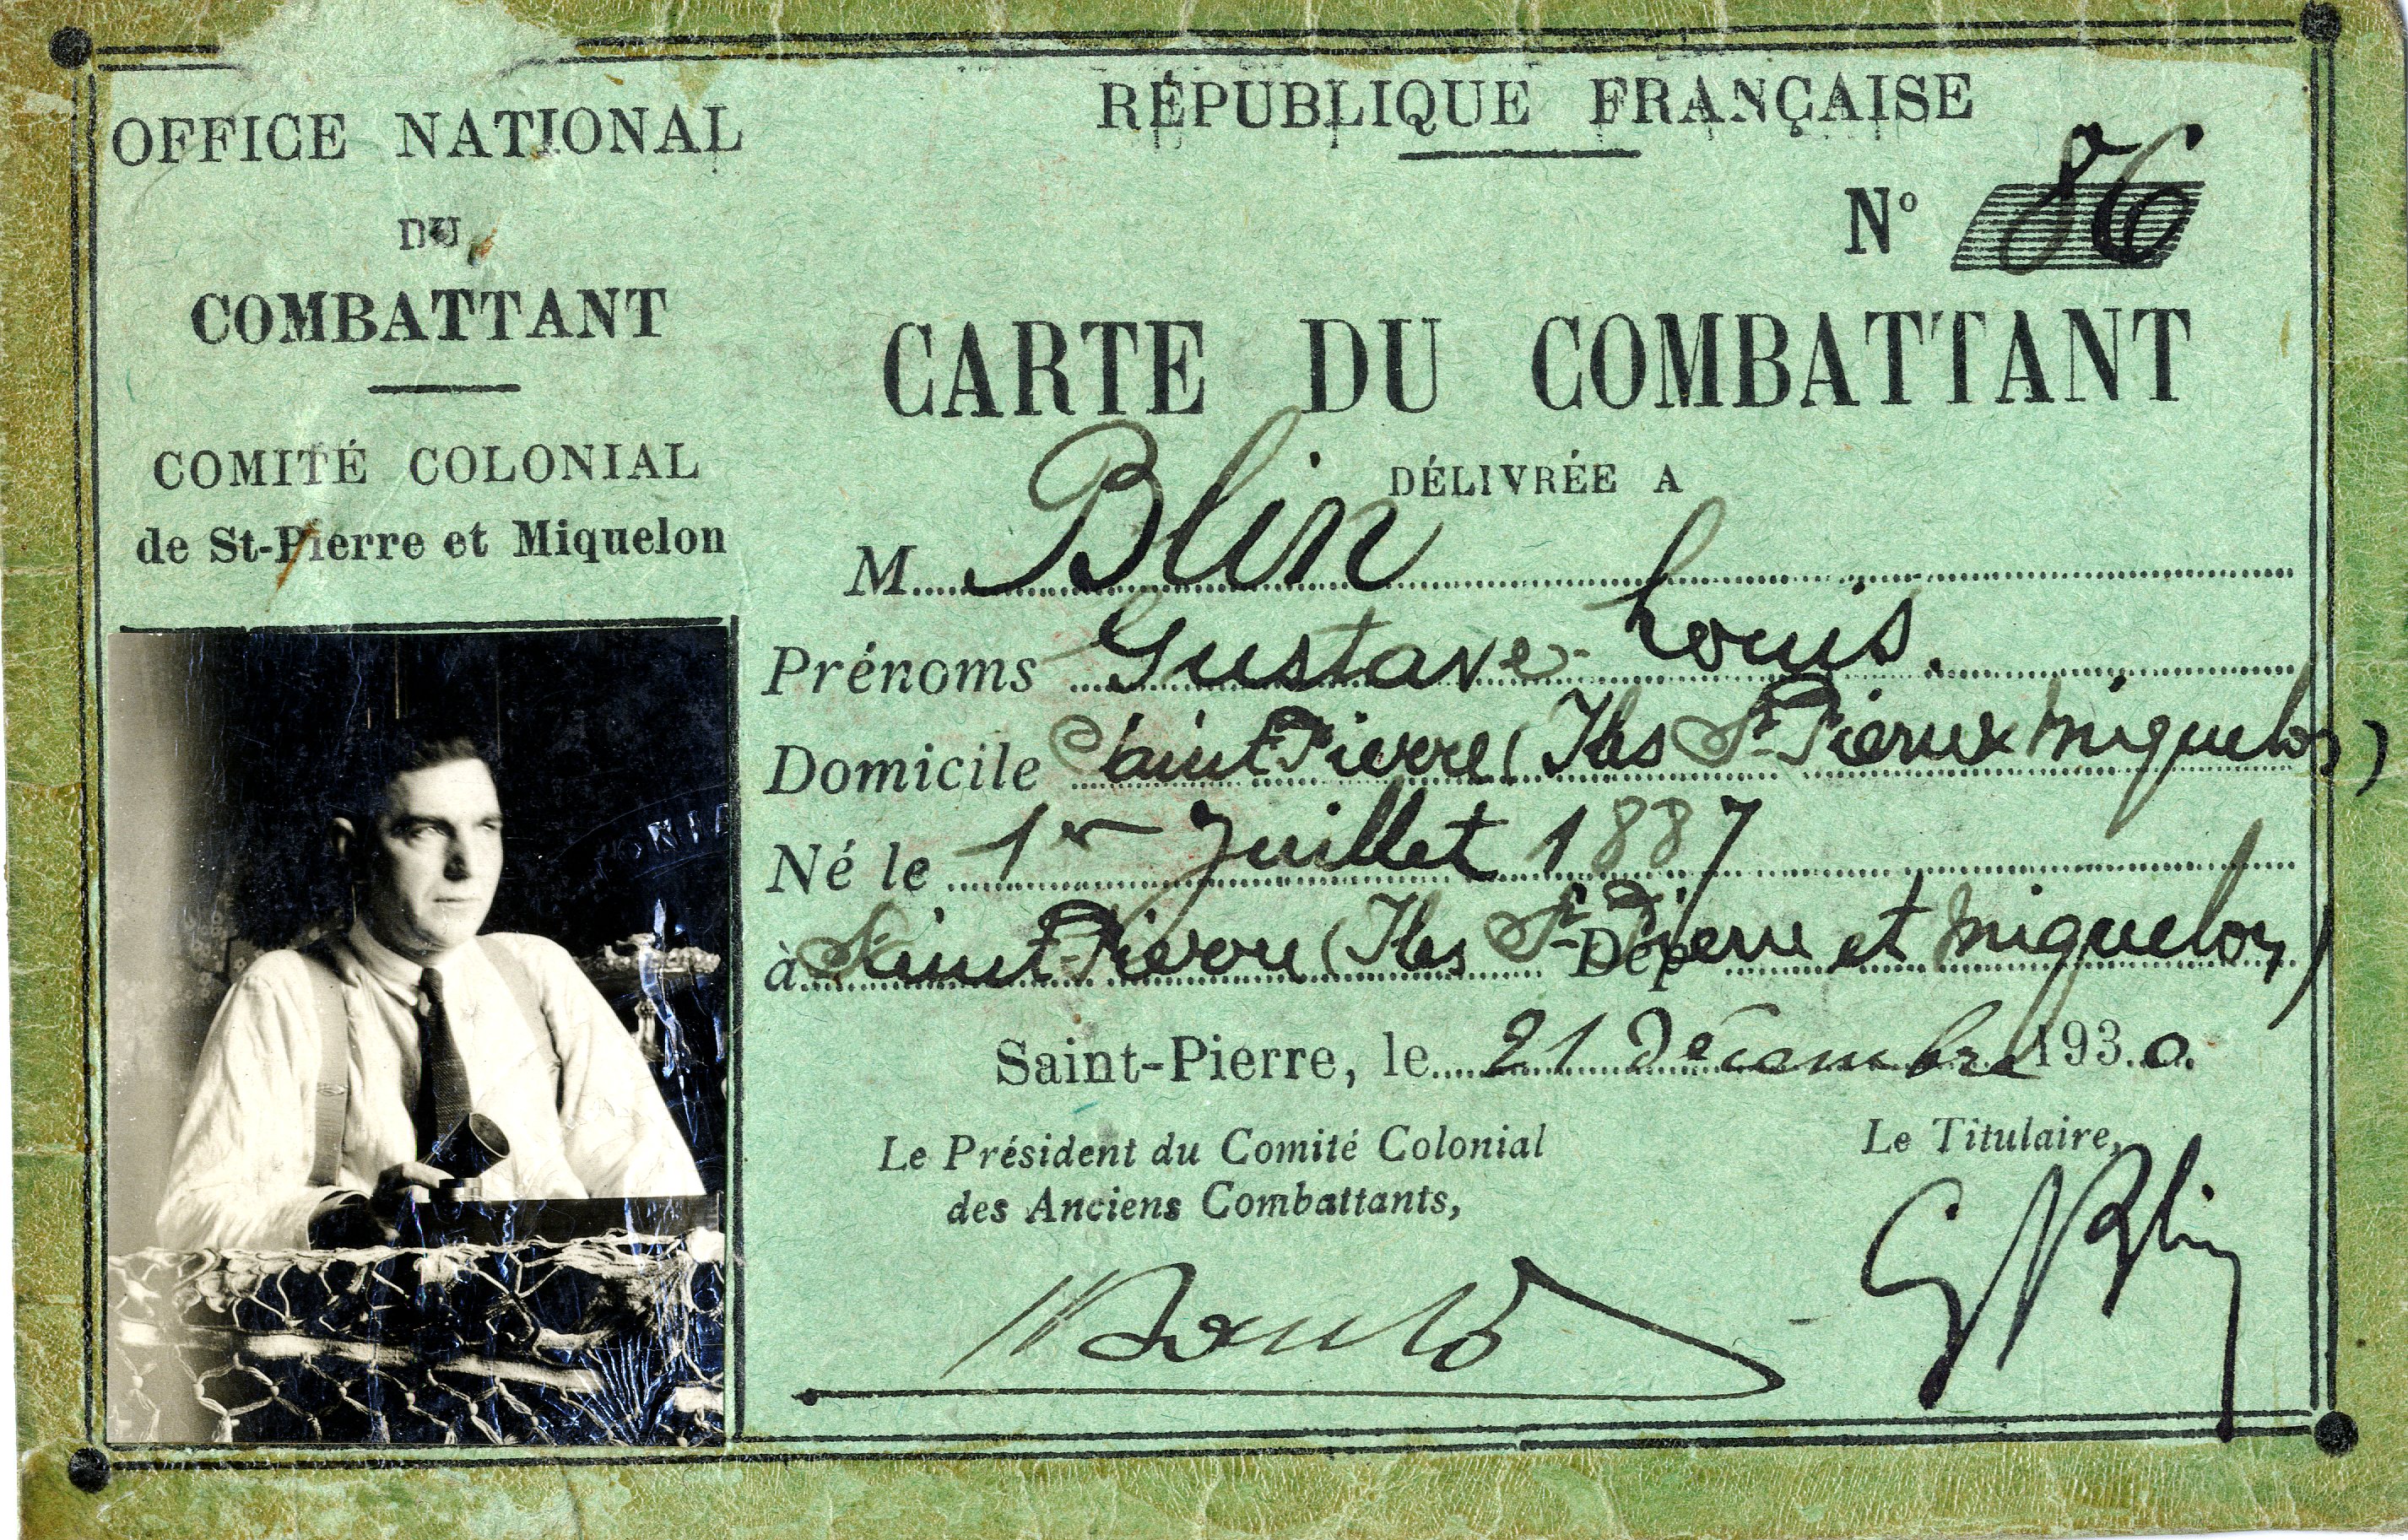 OFFICE NATIONAL
DU
COMBATTANT
COMITÉ COLONIAL
de St-Pierre et Miquelon
RÉPUBLIQUE FRANÇAISE
N° 86
CARTE DU COMBATTANT
DÉLIVRÉE A
M. Blin
Prénoms Gustave Louis.
Domicile Saint-Pierre (Iles St-Pierre & Miquelon)
Né le 1er Juillet 1887
à Saint-Pierre (Iles St-Pierre et Miquelon) Dép
Saint-Pierre, le 21 Décembre 1930.
Le Président du Comité Colonial
des Anciens Combattants,
Le Titulaire,
G Blin